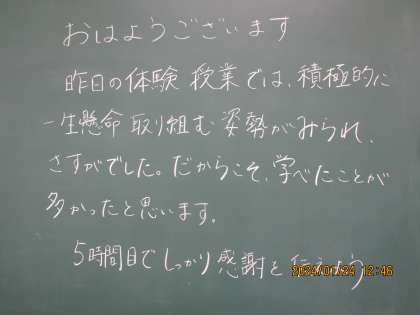 おはようございます
昨日の体験授業では、積極的に
一生懸命取り組む姿勢がみられ、
さすがでした。だからこそ、学べたことが
多かったと思います。
5時間目でしっかり感謝を伝えよう
2024/01/24 12:46